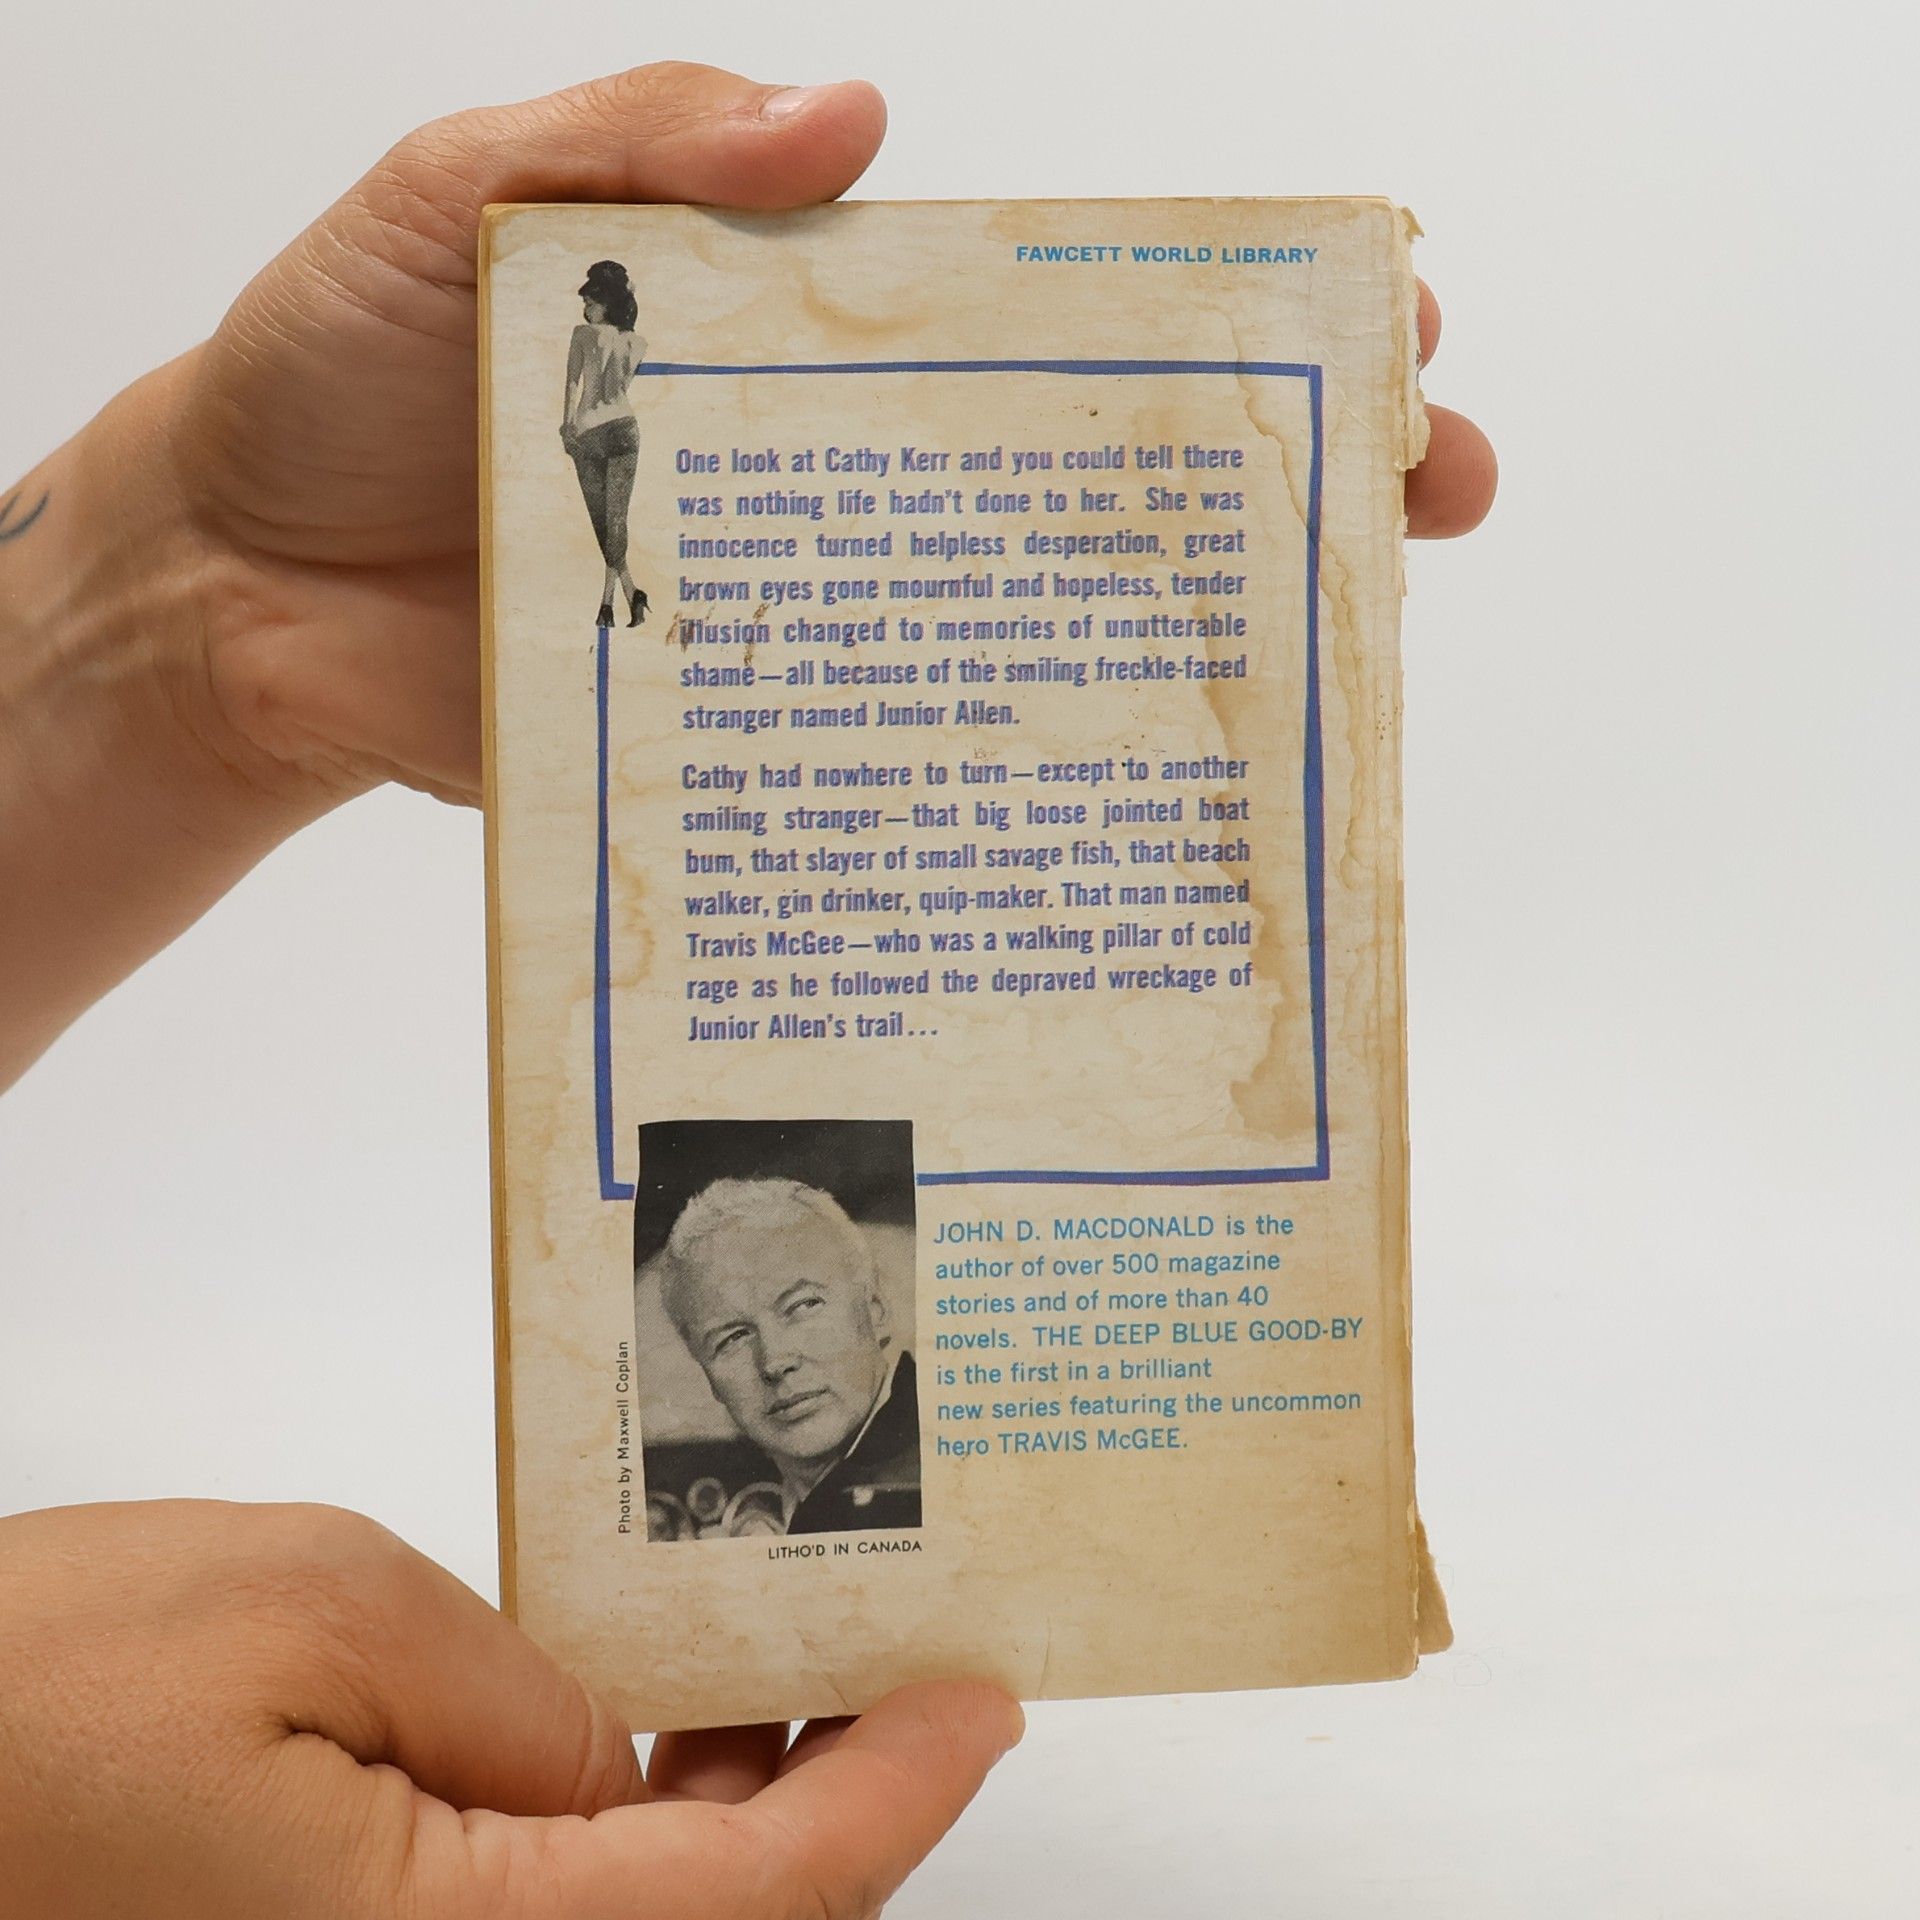 FAWCETT WORLD LIBRARY
One look at Cathy Kerr and you could tell there
was nothing life hadn't done to her. She was
innocence turned helpless desperation, great
brown eyes gone mournful and hopeless, tender
illusion changed to memories of unutterable
shame—all because of the smiling freckle-faced
stranger named Junior Allen.
Cathy had nowhere to turn—except to another
smiling stranger—that big loose jointed boat
bum, that slayer of small savage fish, that beach
walker, gin drinker, quip-maker. That man named
Travis McGee—who was a walking pillar of cold
rage as he followed the depraved wreckage of
Junior Allen's trail...
JOHN D. MACDONALD is the
author of over 500 magazine
stories and of more than 40
novels. THE DEEP BLUE GOOD-BY
is the first in a brilliant
new series featuring the uncommon
hero TRAVIS McGEE.
Photo by Maxwell Coplan
LITHO'D IN CANADA